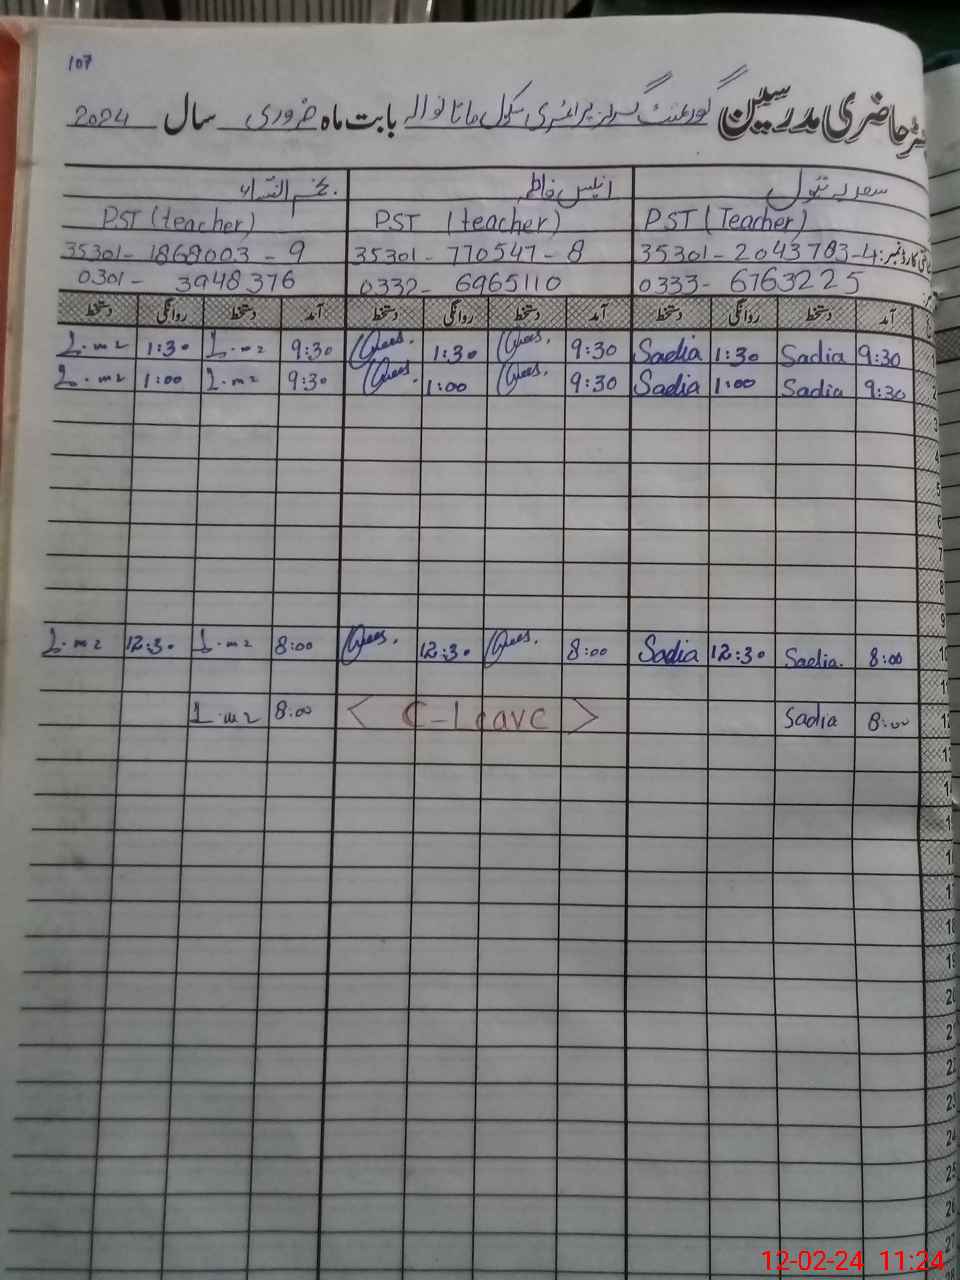 107
رجسٹر حاضری مدرسین گورنمنٹ گرلز پرائمری سکول مانانوالہ بابت ماہ فروری سال 2024
سعدیہ بتول انیس فاطمہ نجم النساء
PST (Teacher) PST (teacher) PST (teacher)
35301-2043783-4 35301-770547-8 35301-1868003-9
0333-6763225 0332-6965110 0301-3948376
آمد دستخط روانگی دستخط آمد دستخط روانگی دستخط آمد دستخط روانگی دستخط
1 9:30 Sadia 1:30 Sadia 9:30 1:30 9:30 1:30
2 9:30 Sadia 1:00 Sadia 9:30 1:00 9:30 1:00
3
4
5
6
7
8
9
10 8:00 Sadia. 12:30 Sadia 8:00 12:30 8:00 12:30
11
12 8:00 Sadia < C-Leave > 8:00
13
14
15
16
17
18
19
20
21
22
23
24
25
26
27
28
12-02-24 11:24